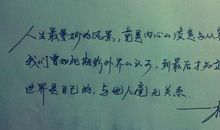 人生最曼妙的风景，竟是内心的淡定与从
我们曾如此期盼外界的认可，到最后才知
世界是自己的，与他人毫无关系